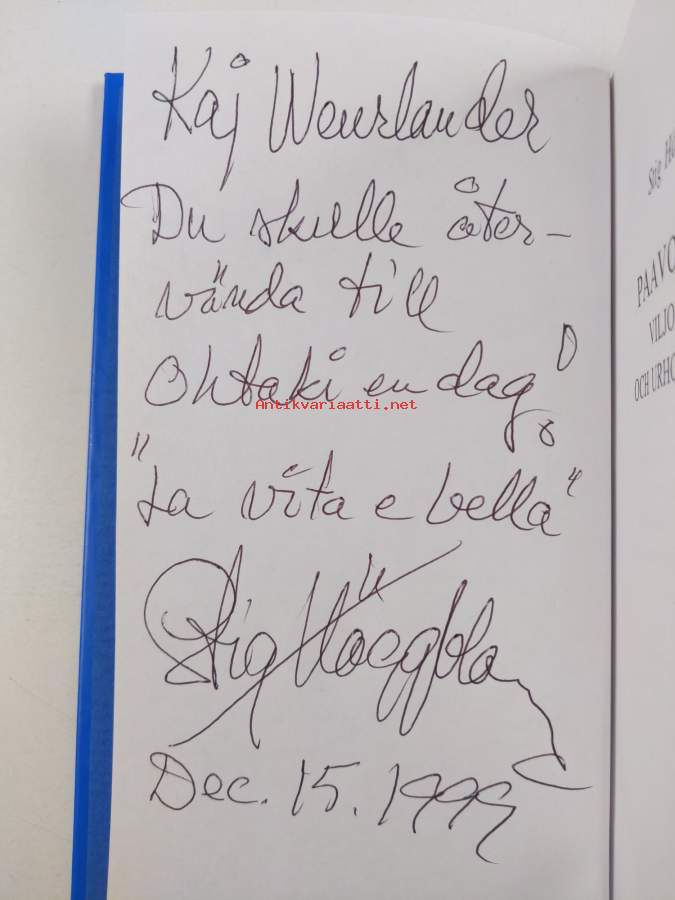 Kaj Weurlander
Du skulle åter-
vända till
Ohtaki en dag!
Antikvariaatti.net
"La vita e bella"
Stig Häggblom
Dec. 15. 1999
Stig
PAAVO
VILJO
OCH URHO